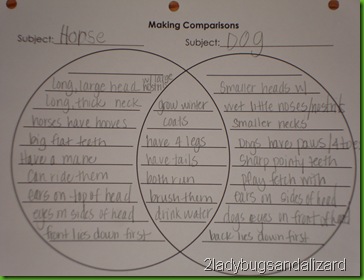 Making Comparisons
Subject: Horse
Subject: Dog
long, large head w/ large nostrils
long, thick neck
horses have hooves
big flat teeth
Have a mane
Can ride them
ears on top of head
eyes on sides of head
front lies down first
grow winter
coats
have 4 legs
have tails
both run
brush them
drink water
smaller heads w/
wet little noses/nostrils
smaller necks
Dogs have paws/4 toes
sharp pointy teeth
play fetch with
ears on sides of head
dogs eyes in front of head
back lies down first
2ladybugsandalizard